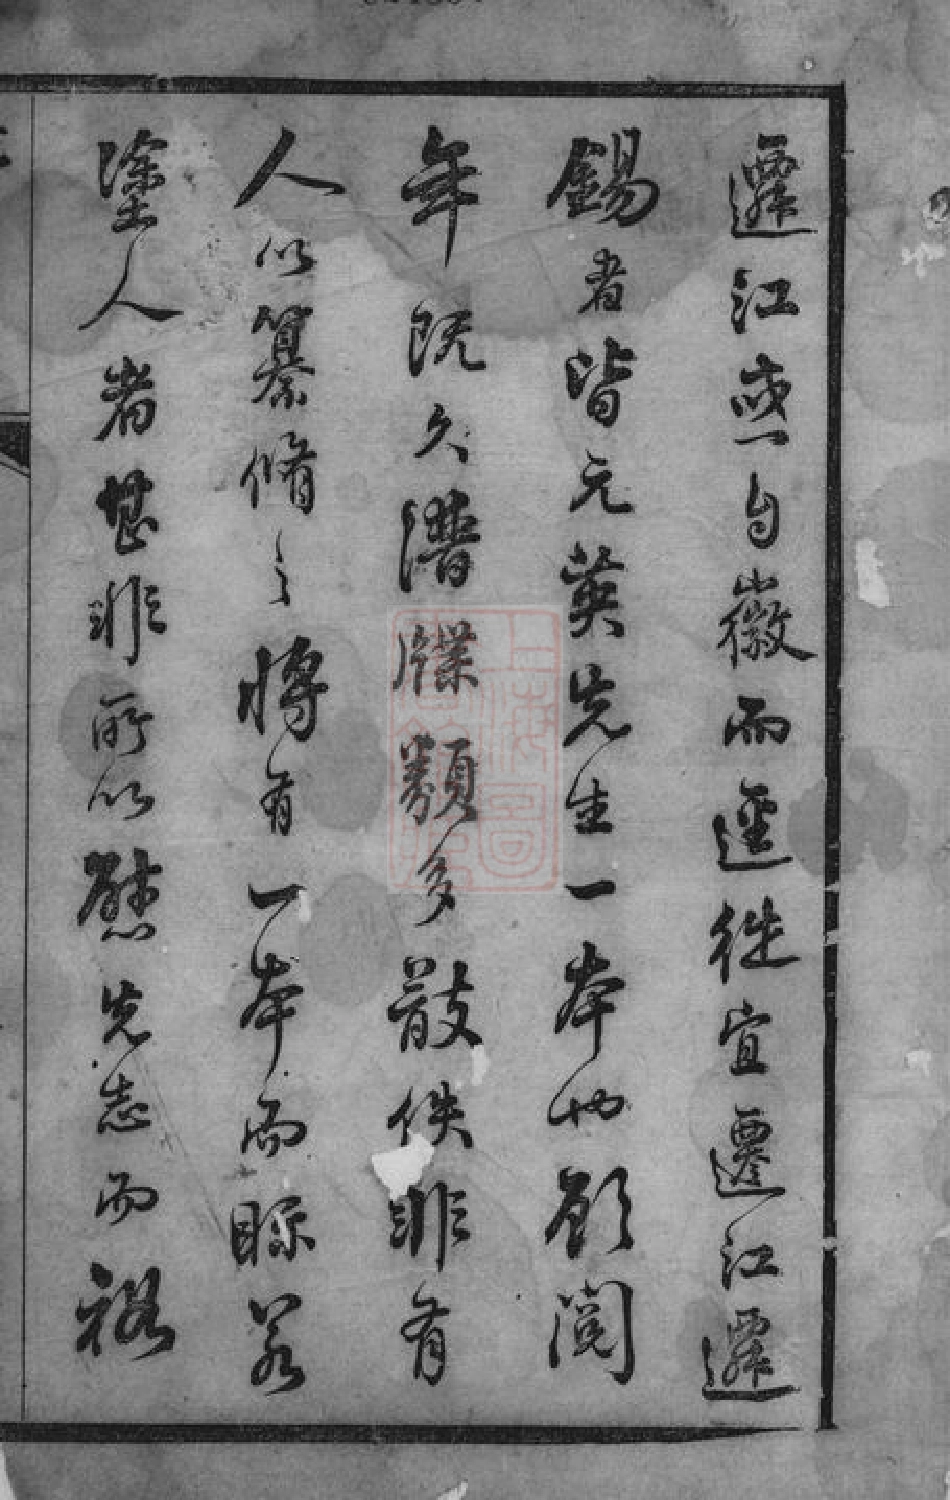 遷江或自徽而逕徙宜遷江遷
錫者皆元英先生一本也顧閱
年既久譜牒類多散佚非有
人以纂脩之將有一本而眎若
塗人者甚非所以慰先志而裕
上海圖書館藏